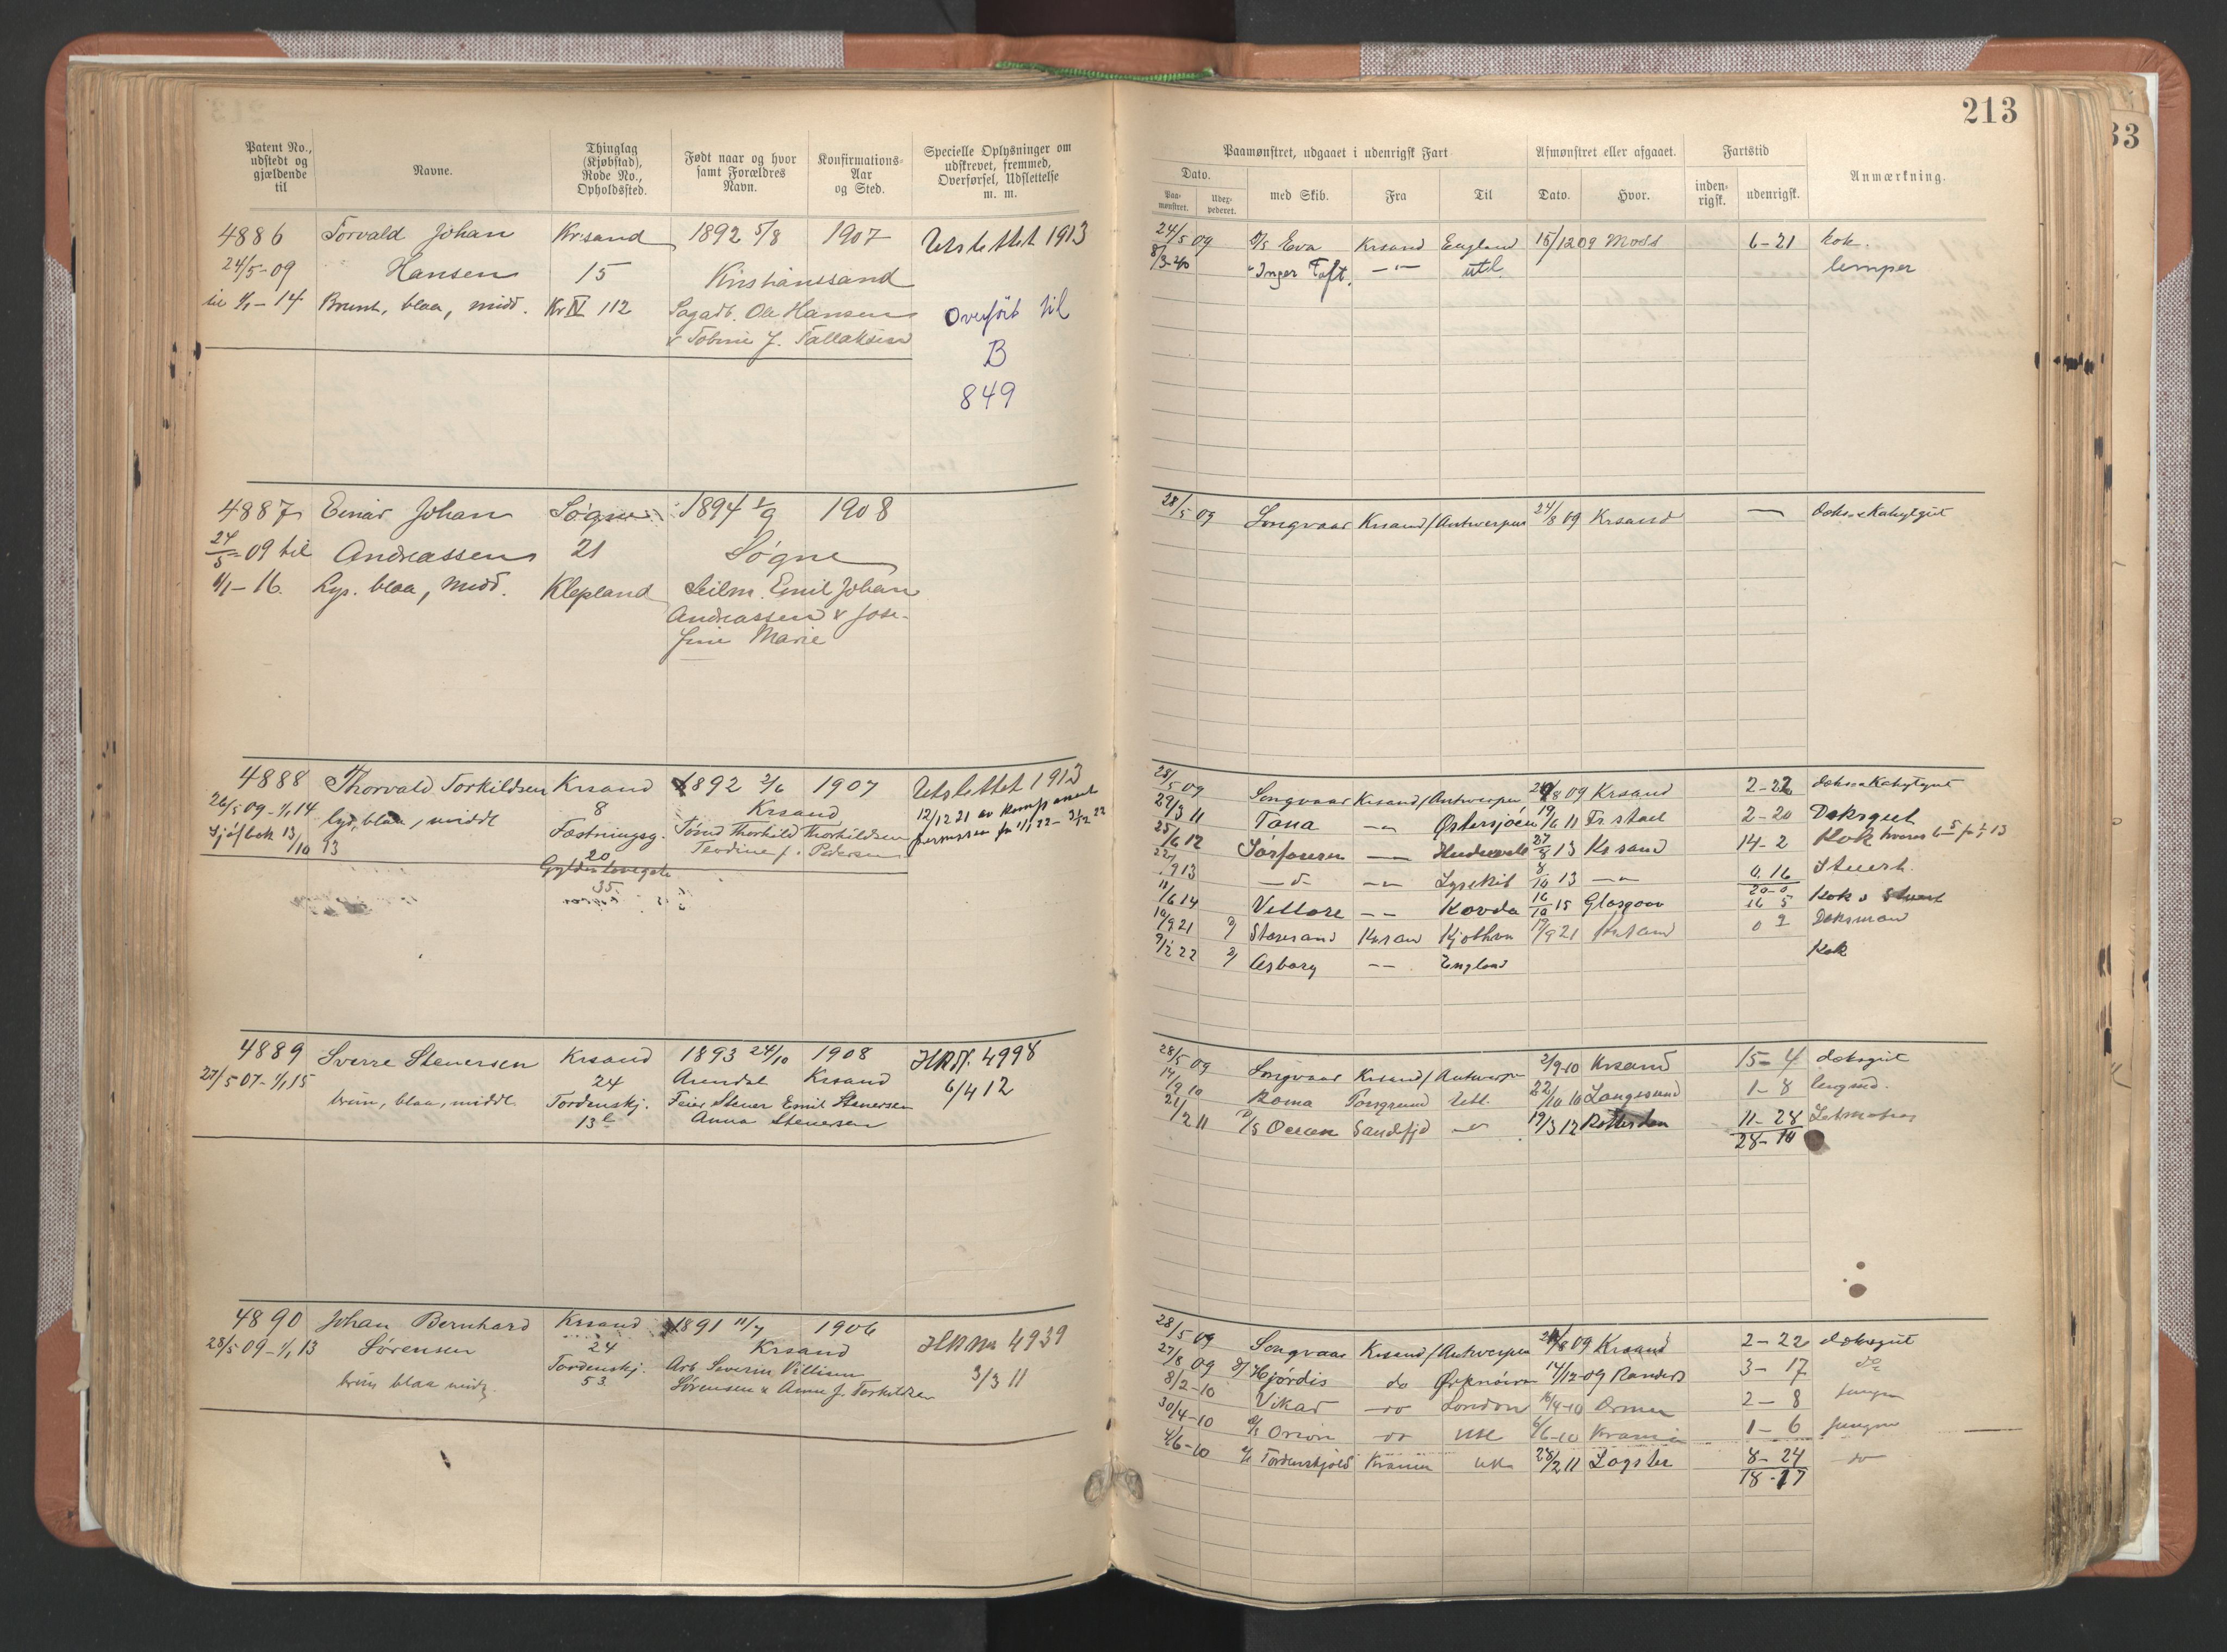 213
33
Patent No., udstedt og gjældende til
Navne.
Thinglag (Kjøbstad), Rode No., Opholdssted.
Født naar og hvor samt Forældres Navn.
Konfirmations-Aar og Sted.
Specielle Oplysninger om udskrevet, fremmed, Overførsel, Udslettelse m. m.
Paamønstret, udgaaet i udenrigsk Fart
Afmønstret eller afgaaet.
Fartstid
Anmærkning.
Dato.
Paa-mønstret.
med Skib.
Fra
Til
Dato.
Hvor.
inden-rigsk.
udenrigsk.
4886 Torvald Johan Krsand 1892 5/8 1907 Utslettet 1913
24/5-09 Hansen 15 Kristianssand
til 1/1-14 Brunt, blaa, midd. Kr IV 112 Ole Hansen
& Tobine J. Tallaksen
Overført til
B
849
24/5 09 D/S Eva Krsand England 15/12 09 Moss 6-21 kok.
8/3-40 " Inger Toft. -"- utl. lemper
4887 Einar Johan Søgne 1894 1/9 1908
24/5-09 til Andreassen 21 Søgne
1/1-16. Lys. blaa, midd. Klepland Seilm. Emil Johan
Andreassen & Jose-
fine Marie
28/5 09 Songvaar Krsand/Antwerpen 24/8 09 Krsand — Doks & Kahytgut
4888 Thorvald Torkildsen Krsand 1892 2/6 1907 Utslettet 1913
26/5 09-1/1 14 lys, blaa, middl 8 Krsand 12/12 21 av
13/10 13 Fæstningsg. Thorkild Thorkildsen
Teodine f. Pedersen
20
Gyldenløvegate
35
28/5 09 Songvaar Krsand/Antwerpen 24/8 09 Krsand 2-22 doks & Kahytgut
29/3 11 Tana -"- Østersjøen 19/6 11 Fr.stad 2-20 Doksgut
25/6 12 -"- 27/8 13 Krsand 14-2 Kok
913 -d- -"- Lysekil 8/10 13 -"- 0.16 Stuert.
20-0
11/6 14 -"- Kovda 16/10 15 Glasgow 16 5 Kok & Stuert
19/9 21 Krsan 19/9 21 0 2 Doksman
9/12 22 Asborg -"- England Kok
4889 Sverre Stenersen Krsand 1893 24/10 1908 4998
27/5 07-1/1 15 24 Arendal Krsand 6/4 12
brun, blaa, middl. Tordenskj. Feier Stener Emil Stenersen
13 b Anna Stenersen
28/5 09 Songvaar Krsand/Antwerpen 2/9-10 Krsand 15-4 doksgut
14/9 10 Roma Porsgrund Utl. 22/10 10 Langesund 1-8
21/2 11 D/S Sandefjd 19/3 12 Rotterdam 11-28 Letmatros
28-10
4890 Johan Bernhard Krsand 1891 11/7 1906 4939
28/5 09-1/1 13 Sørensen 24 Krsand 3/3 11
brun blaa midd. Tordenskj. Arb. Severin Villisen
53 Sørensen & Anne f. Torkildsen
28/5 09 Songvaar Krsand/Antwerpen 24/8 09 Krsand 2-22 doksgut
27/8 09 Hjørdis do Ørknøerne 14/12-09 Randers 3-17 do
8/2-10 Vikar do London 16/4-10 2-8 Jungm
30/4-10 D/S Orion do utl 6/6-10 Krania 1-6 Jungm
4/6-10 Tordenskjold Krania utl 28/2 11 Løgstør 8-24 do
18-17